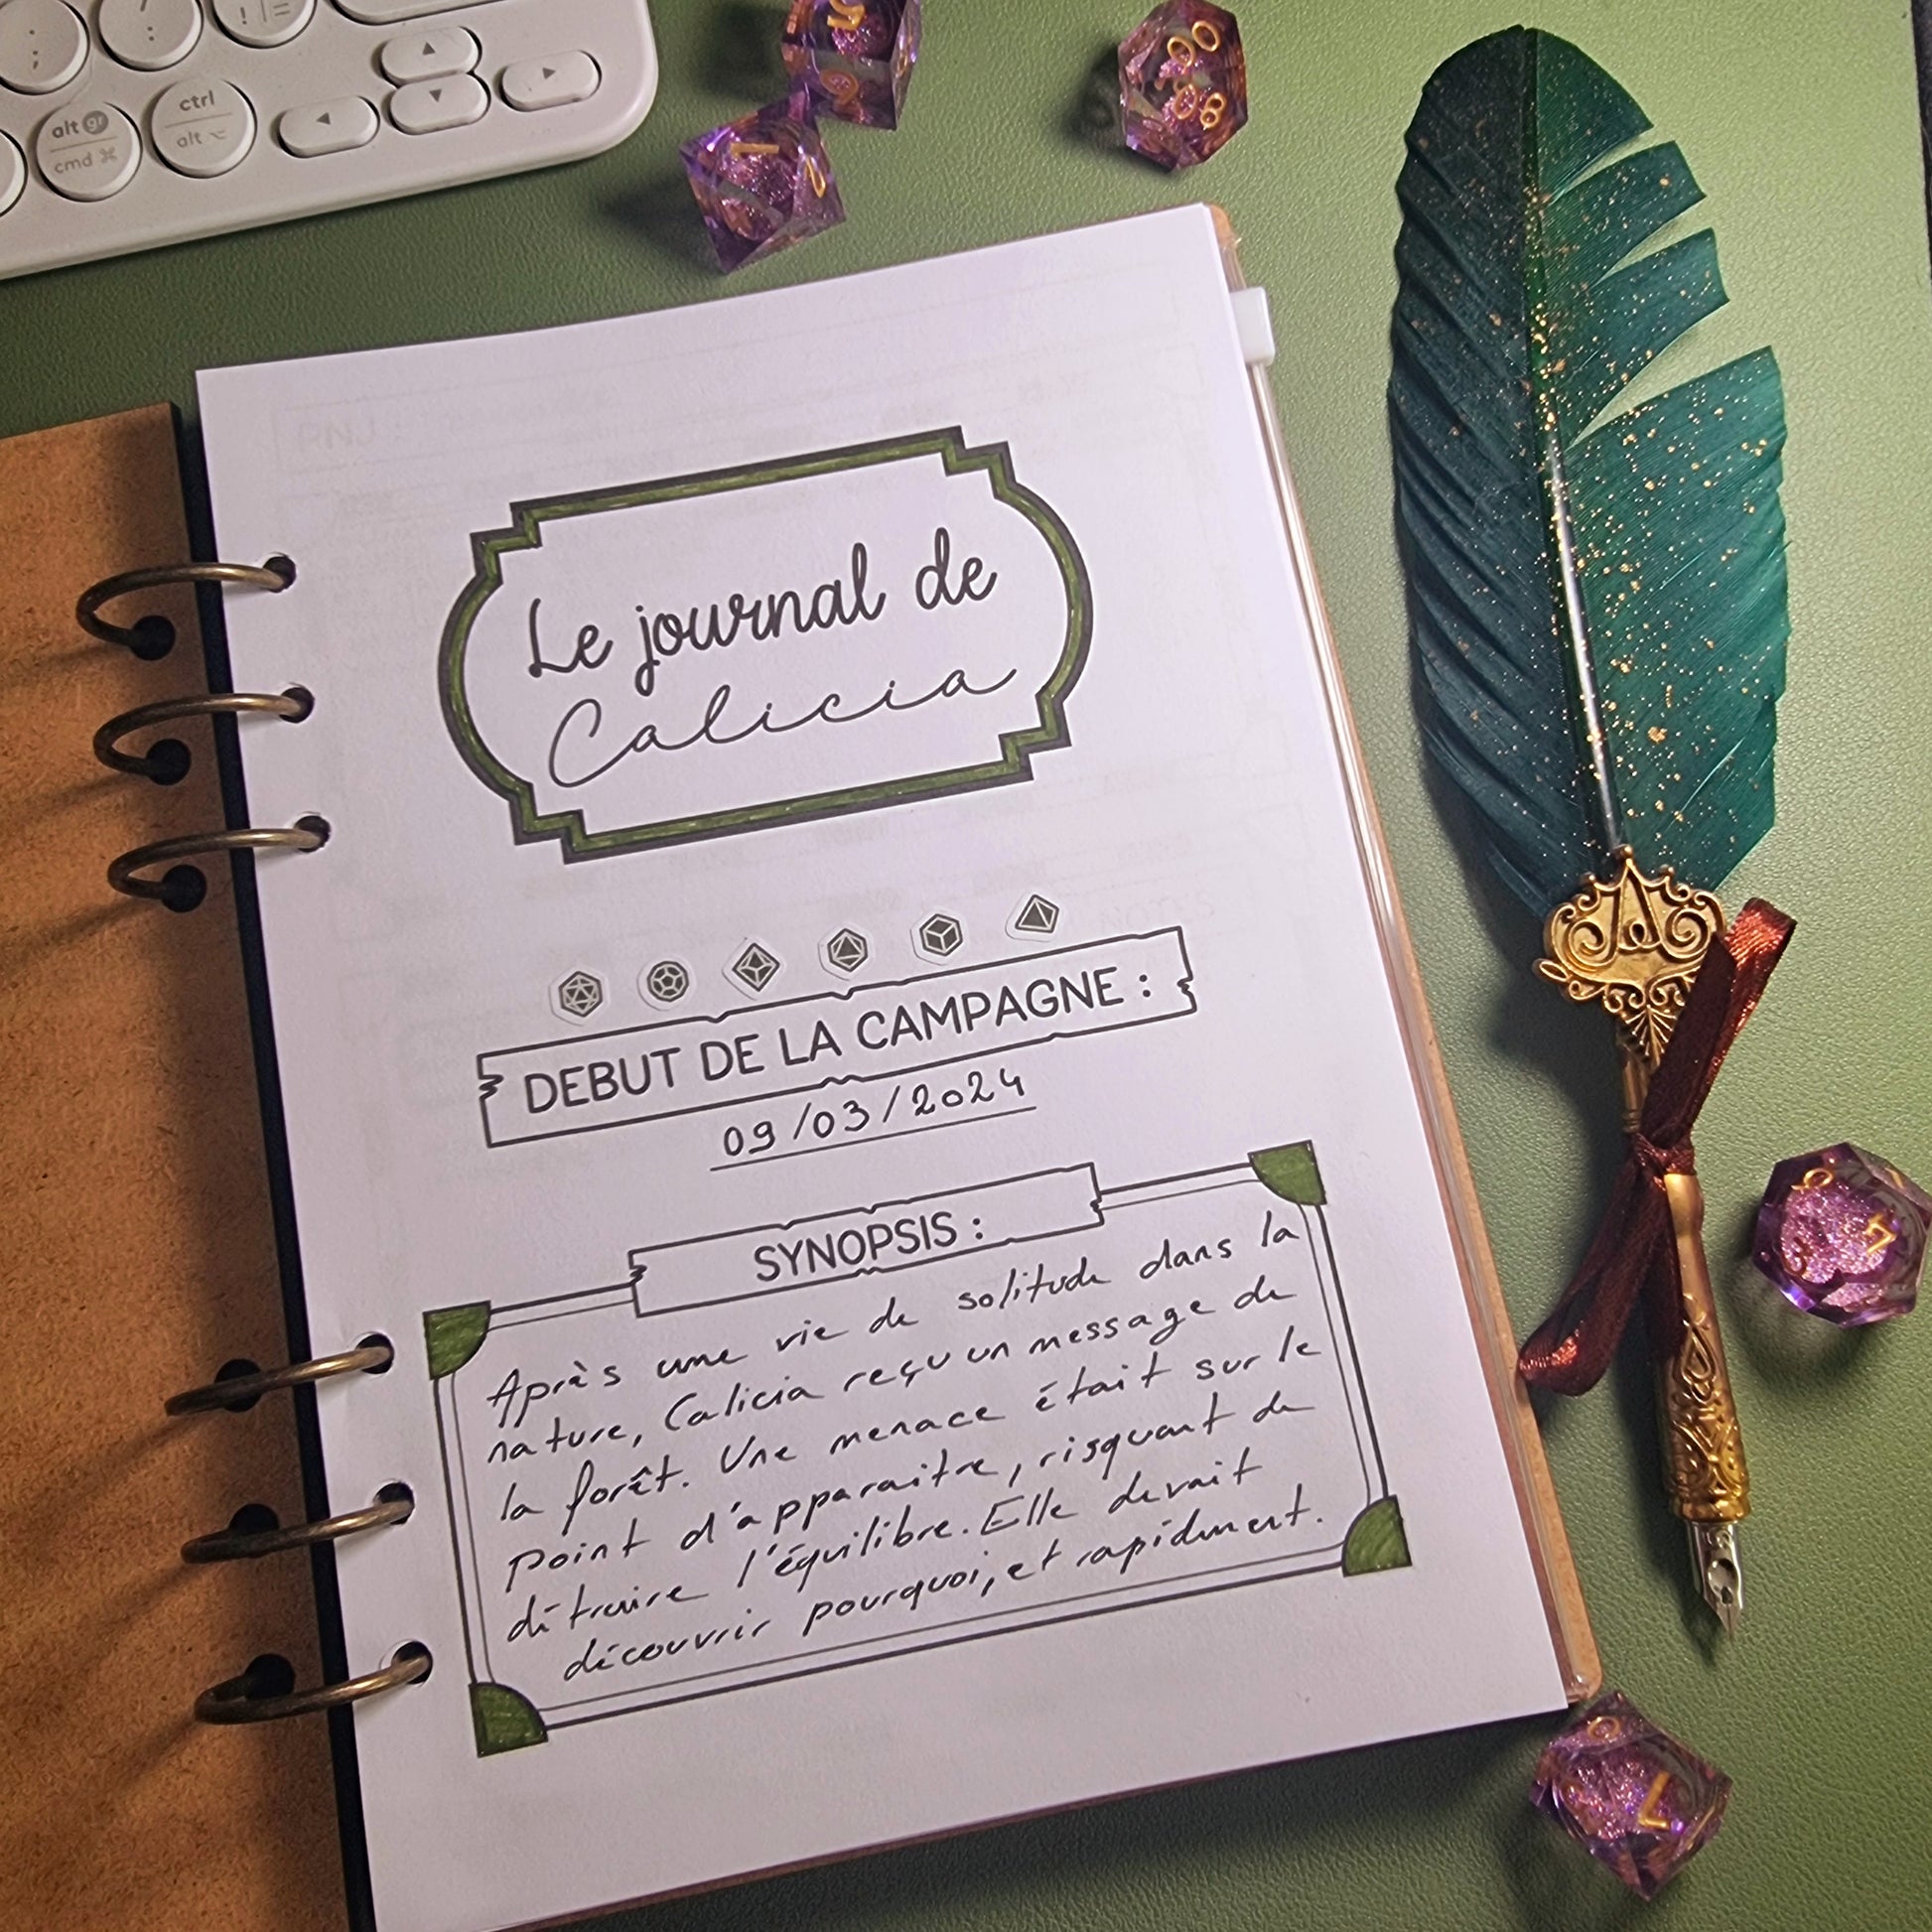 ; / : ! | =
alt gr ctrl
cmd ⌘ alt ⌥
Le journal de
Calicia
DEBUT DE LA CAMPAGNE :
09/03/2024
SYNOPSIS :
Après une vie de solitude dans la
nature, Calicia reçu un message de
la forêt. Une menace était sur le
point d'apparaitre, risquant de
détruire l'équilibre. Elle devait
découvrir pourquoi, et rapidement.
PNJ :
NOTES
00
80
4
7